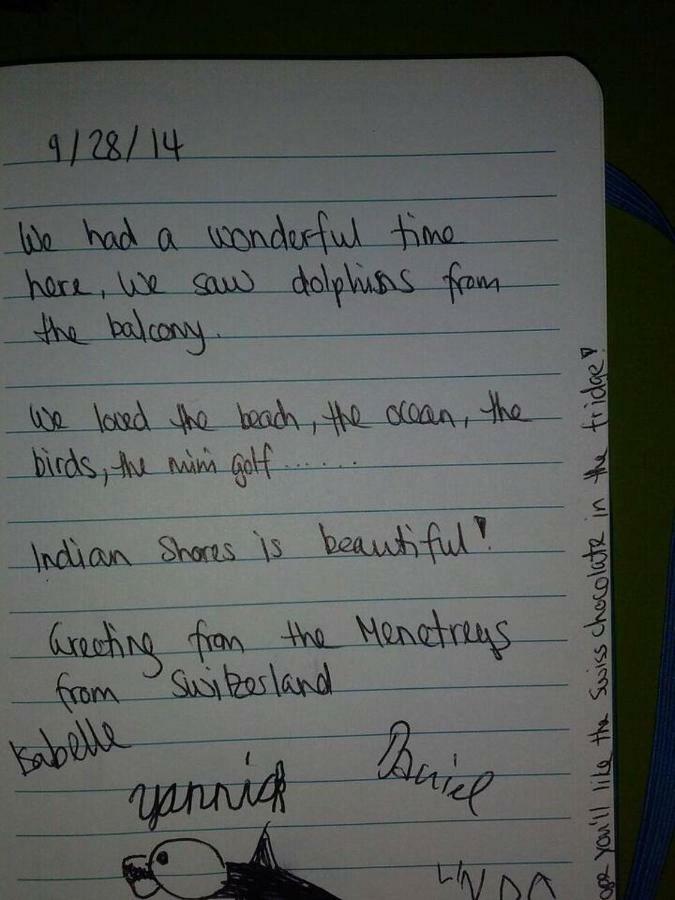 9/28/14
We had a wonderful time
here, We saw dolphins from
the balcony.
We loved the beach, the ocean, the
birds, the mini golf ......
Indian Shores is beautiful!
Greeting from the Menetreys
from Switzerland
Isabelle
yannick
Daniel
LINDA
you'll like the Swiss chocolate in the fridge!